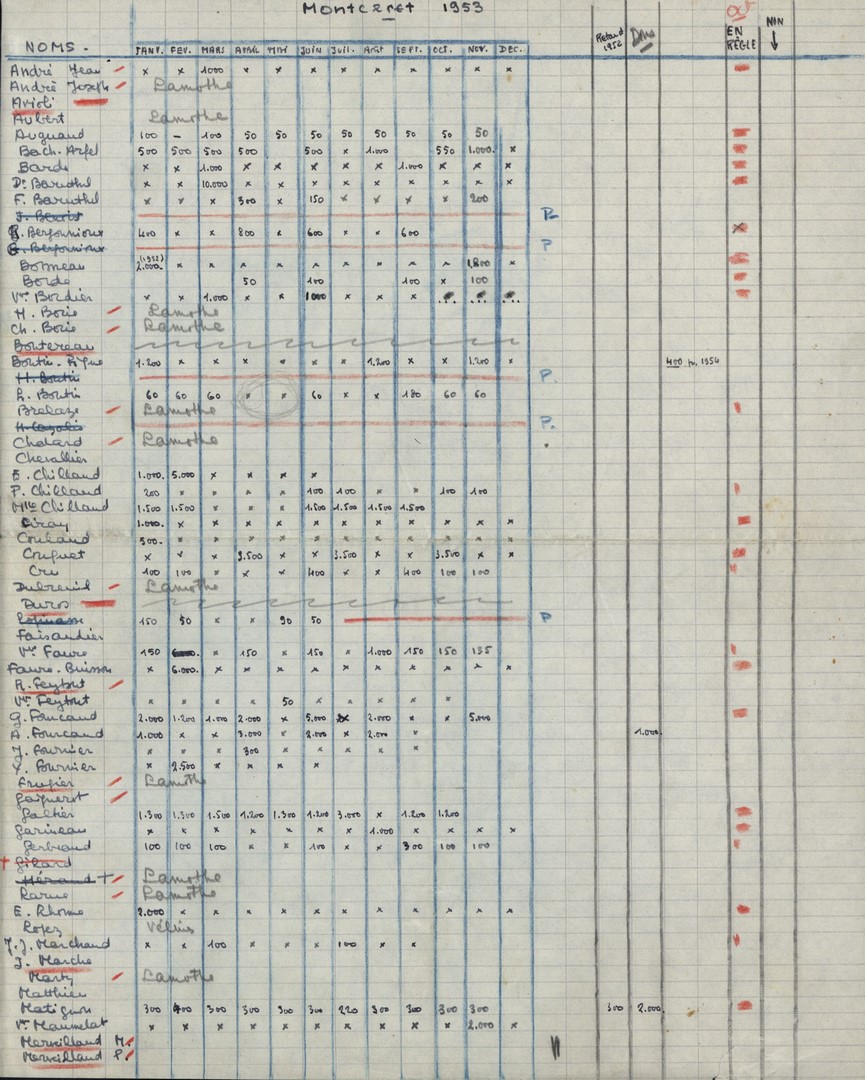 Montcaret 1953
NOMS. JANV. FEV. MARS AVRIL MAI JUIN JUIL. AOÛT SEPT. OCT. NOV. DEC. Retard 1952 Dons oct EN RÈGLE NON ↓
André Jean x x 1000 x x x x x x x x x
André Joseph Lamothe
Arioli
Aubert Lamothe
Auguand 100 – 100 50 50 50 50 50 50 50 50
Bach. Arfel 500 500 500 500 500 x 1.000 550 1.000. x
Barde x x 1.000 x x x x x 1.000 x x x
Dr Baruthel x x 10.000 x x x x x x x x x
F. Baruthel x x x 300 x 150 x x x x 200
J. Benoist P.
R. Berjonnioux 400 x x 800 x 600 x x 600
G. Berjonnioux P
Bonneau (1952) 2.000. x x x x x x x x x 1.800 x
Borde 50 100 100 x 100
Vve Bordier x x 1.000 x x 1000 x x x
H. Borie Lamothe
Ch. Borie Lamothe
Bontereau
Boutin. 1.200 x x x x x x 1.200 x x 1.200 x 400 pr. 1954
H. Boutin P.
L. Boutin 60 60 60 x x 60 x x 180 60 60
Brelaze Lamothe
H. Cazalis P.
Cholard Lamothe
Chevallier
E. Chilland 1.000. 5.000 x x x x
P. Chilland 200 x x x x 100 100 x x 100 100
Mlle Chilland 1.500 1.500 x x x 1.500 1.500 1.500 1.500
Ciray 1.000. x x x x x x x x x x x
Couland 500. x x x x x x x x x x x
Cruguet x x x 3.500 x x 3.500 x x 3.500 x x
Cru 100 100 x x x 400 x x 400 100 100
Dubreuil Lamothe
Duros
150 50 x x 90 50 P
Faisandier
Vve Faure 150 x 150 x 150 x 1.000 150 150 135
Faure. Buisson x 6.000. x x x x x x x x x x
R. Feytout
Vve Feytout x x x x 50 x x x x x
G. Foucaud 2.000 1.200 1.000 2.000 x 5.000 x 2.000 x x 5.000
A. Fourcaud 1.000 x x 3.000 x 2.000 x 2.000 x 1.000.
J. Fournier x x x 300 x x x x x
Y. Fournier x 2.500 x x x x
Frugier Lamothe
Gaigneret
Galtier 1.300 1.300 1.500 1.200 1.300 1.200 3.000 x 1.200 1.200
Garineau x x x x x x x 1.000 x x x x
Gerbeaud 100 100 100 x x 100 x x 300 100 100
† Gilard
Héraud † Lamothe
Larue Lamothe
E. Rhome 2.000 x x x x x x x x x x x
Lopez Vélins
J.J. Marchand x x 100 x x x 100 x x
J. Marche
Marty Lamothe
Matthieu
Matignon 300 400 300 300 300 300 220 300 300 300 300 300 2.000.
Vve Maumelat x x x x x x x x x x 2.000 x
Merveilland M.
Merveilland P.